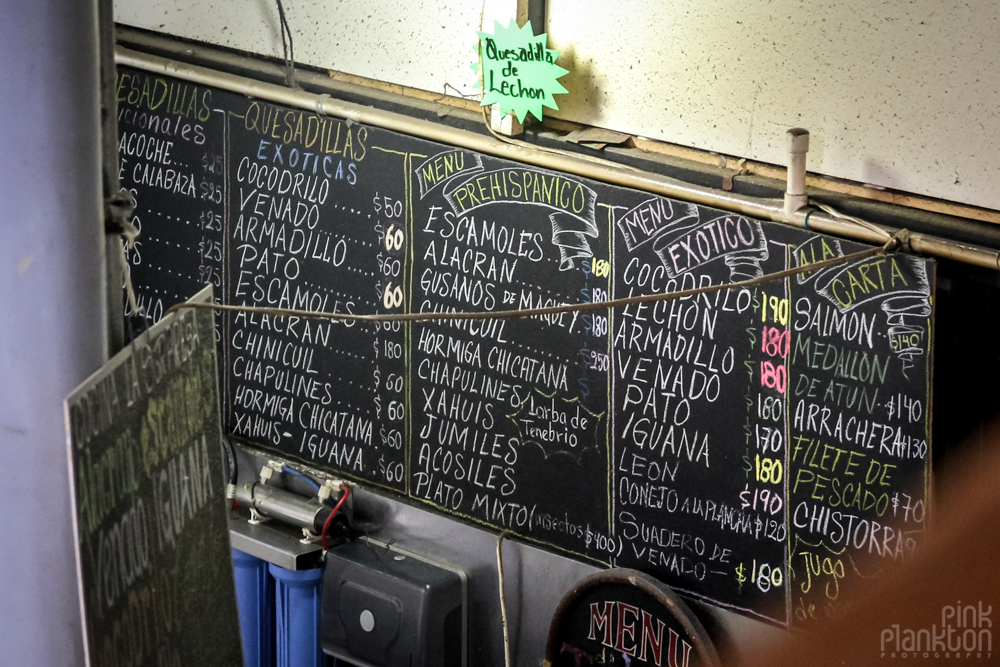 Quesadilla
de
Lechon
ESADILLAS
cionales
ACOCHE...
E CALABAZA $25
$25
$25
QUESADILLAS
EXOTICAS
COCODRILO .... $50
VENADO ..... 60
ARMADILLO .... $60
PATO ..... 60
ESCAMOLES
ALACRAN ..... $180
CHINICUIL
CHAPULINES .... 60
HORMIGA CHICATANA $60
XAHUIS - IGUANA .. $60
MENU
PREHISPANICO
ESCAMOLES $180
ALACRAN 180
GUSANOS DE MAGUEY 180
CHINICUIL
HORMIGA CHICATANA
CHAPULINES
XAHUIS
JUMILES
ACOSILES
PLATO MIXTO (insectos $400)
Larba de
Tenebrio
MENU
EXOTICO
COCODRILO $190
LECHON $180
ARMADILLO $180
VENADO 160
PATO 170
IGUANA $180
LEON $190
CONEJO A LA PLANCHA $120
SUADERO DE
VENADO — $180
A LA
CARTA
SALMON. $140
MEDALLON
DE ATUN. $140
ARRACHERA $130
FILETE DE
PESCADO $70
CHISTORRA
Jugo
IGUANA
Venado
MENU
PINK
Plankton
PHOTOGRAPHY